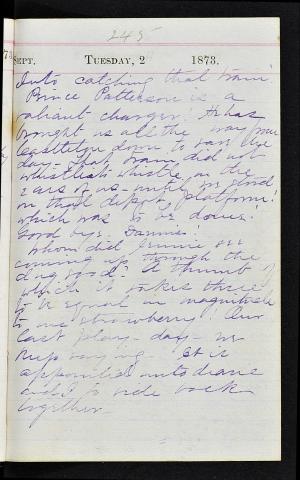 245
73
SEPT. TUESDAY, 2 1873.
Into catching that train.
Prince Patterson is a
valiant charger! He has
brought us all the way from
Castleton down to
day - that train did not
whistle its whistle in the
ears of us until we stood
on that depot platform!
which was to be done!
Good bye. Fannie!
Whom did Jennie see
coming up through the
dog wood? A thumb of
which it takes three
to equal in magnitude
to one strawberry! Our
last play-day - we
keep saying - It is
appointed unto
and I to ride back
together